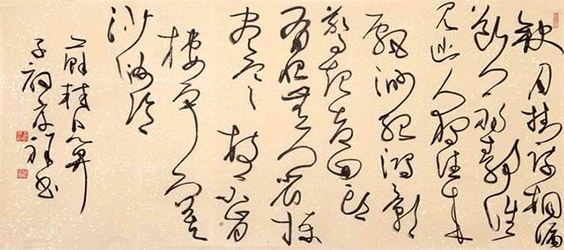 缺月挂疏桐漏
断人初静谁
见幽人独往来
缥缈孤鸿影
惊起却回头
有恨无人省拣
尽寒枝不肯
栖寂寞
沙洲冷
苏轼卜算
子词书